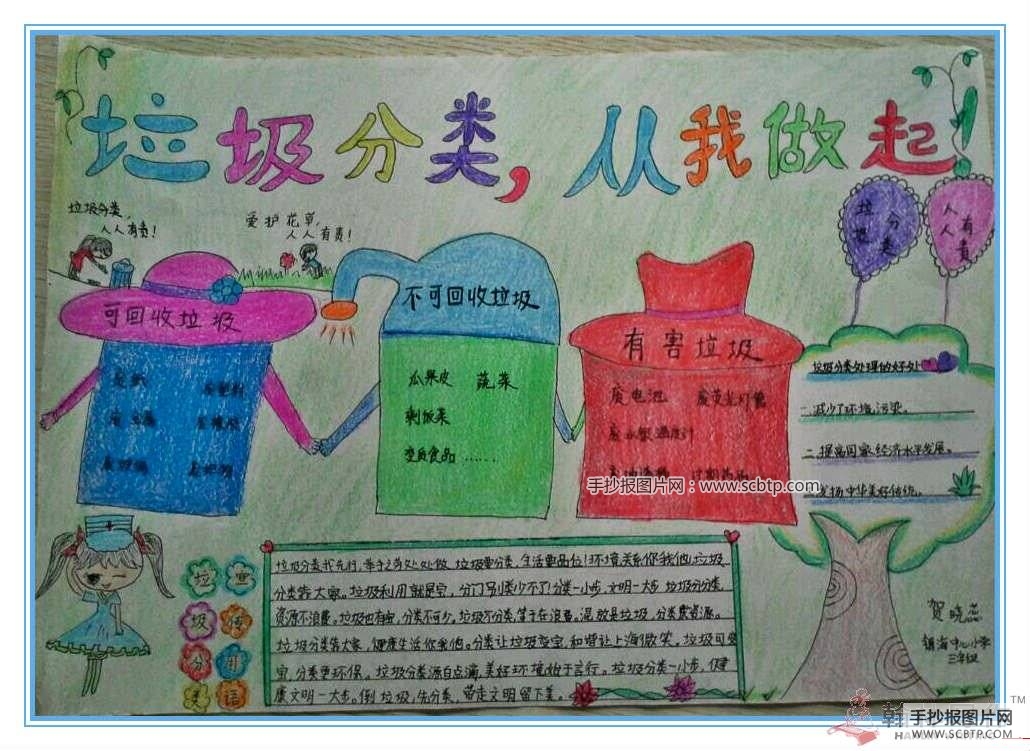 垃圾分类,从我做起!
垃圾分类,
人人有责!
爱护花草,
人人有责!
垃圾
分类
人人
有责
可回收垃圾
不可回收垃圾
瓜果皮 蔬菜
剩饭菜
变质食品……
有害垃圾
废电池 废荧光灯管
废水银温度计
垃圾分类处理的好处
一.减少了环境污染。
二.提高国家经济水平发展。
发扬中华美好传统。
手抄报图片网:www.scbtp.com
垃圾分类
宣传用语
垃圾分类我先行,举手之劳处处做。垃圾要分类,生活要品位!环境关系你我他,垃圾
分类靠大家。垃圾利用就是宝,分门别类少不了!分类一小步,文明一大步。垃圾分分类,
资源不浪费。垃圾也有家,分类不可少。垃圾不分类,等于在浪费。混放是垃圾,分类成资源。
垃圾分类靠大家,健康生活你我他。分类让垃圾变宝,和谐让上海微笑。垃圾可变
宝,分类更环保。垃圾分类源自点滴,美好环境始于言行。垃圾分类一小步,健
康文明一大步。倒垃圾,先分类,带走文明留下美。
贺晓蕊
镇海中心小学
三年级
手抄报图片网
WWW.SCBTP.COM
TM